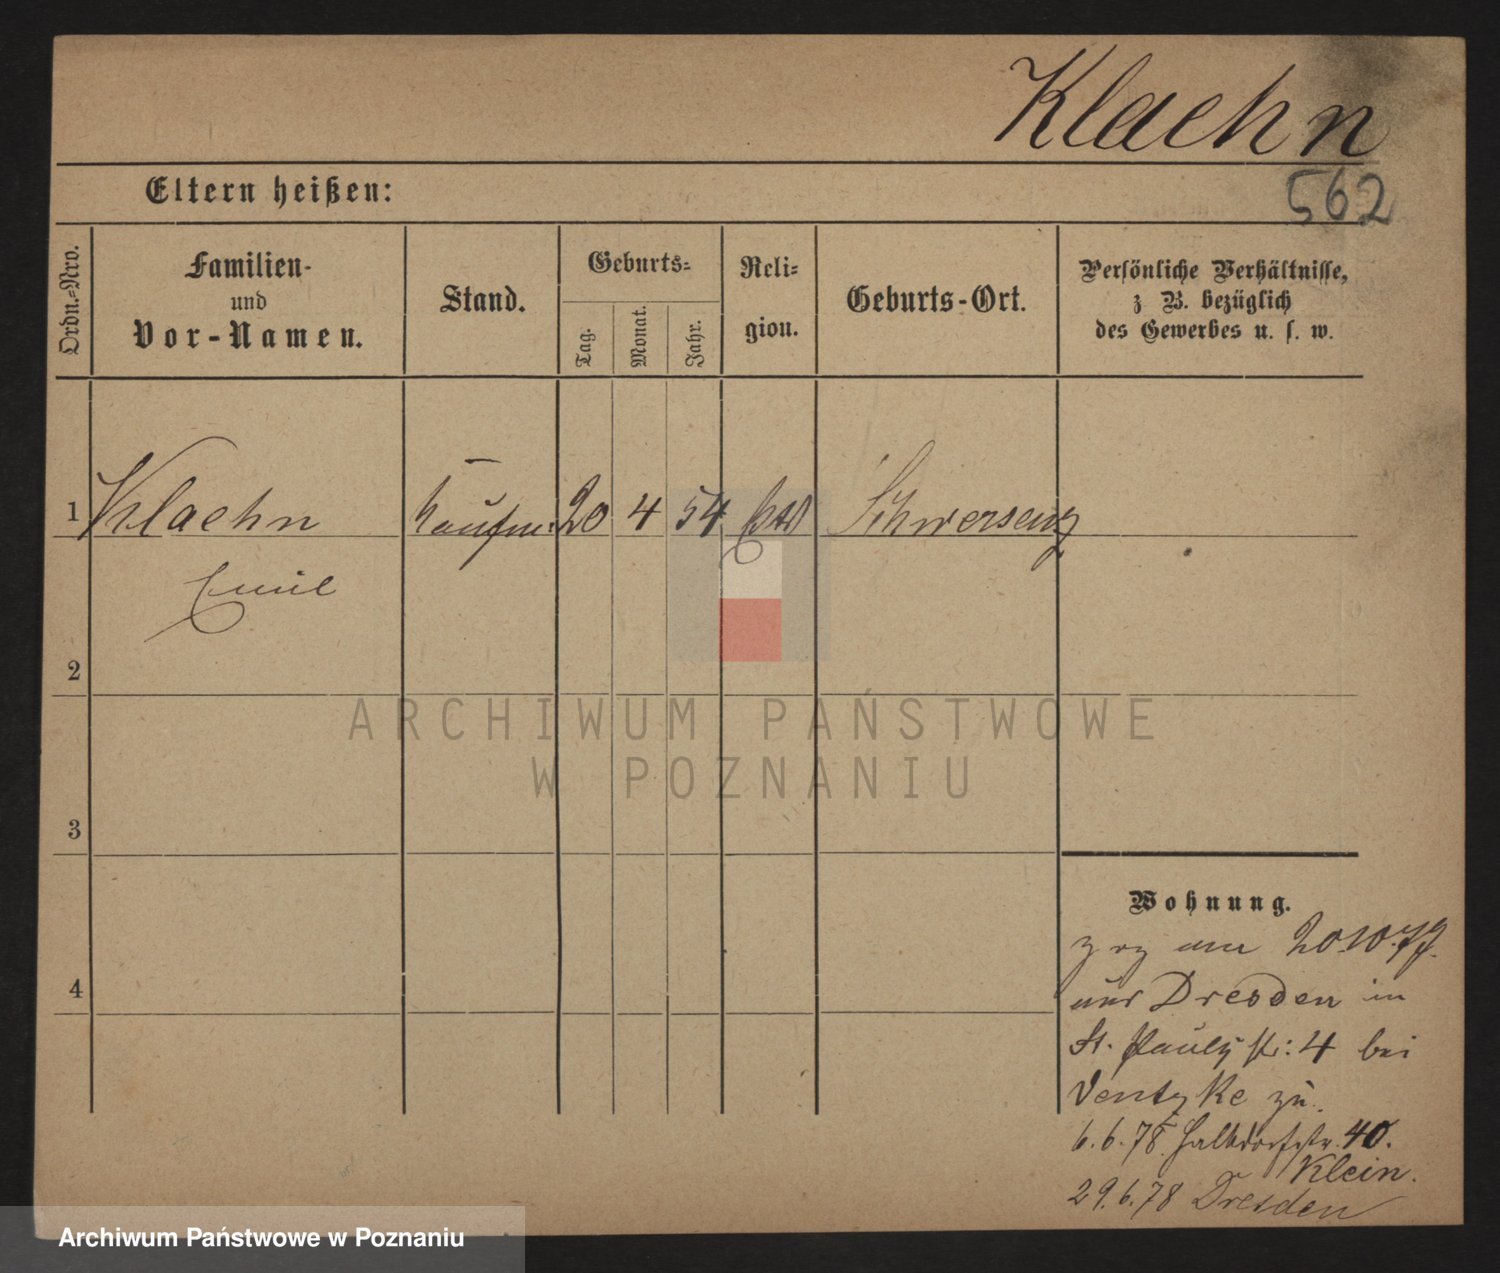 Klaehn
562
Eltern heißen:
Ordn.-Nro.
Familien-
und
Vor-Namen.
Stand.
Geburts-
Tag.
Monat.
Jahr.
Reli-
gion.
Geburts-Ort.
Persönliche Verhältnisse,
z. B. bezüglich
des Gewerbes u. s. w.
1 Klaehn Kaufm: 20 4 54 Schwersenz
Emil
2
3
4
ARCHIWUM PAŃSTWOWE
W POZNANIU
Wohnung.
zog am 20.10.77.
aus Dresden in
St. Pauly str: 4 bei
Ventzke zu.
6.6.78 Halbdorfstr. 40.
Klein.
29.6.78 Dresden
Archiwum Państwowe w Poznaniu